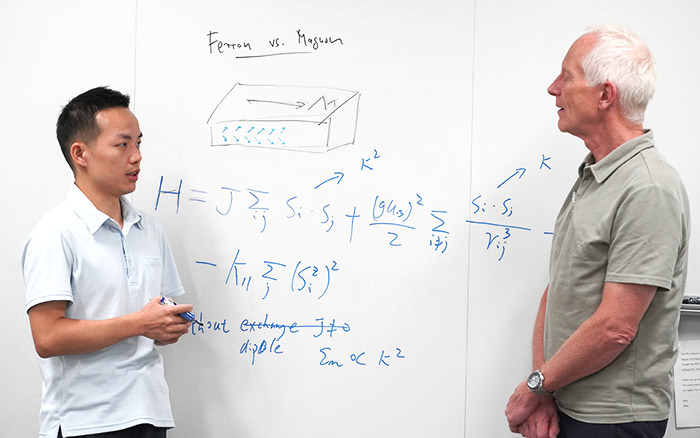 Ferron vs. Magnon
M
K²
K
H = J Σ_ij S_i · S_j + (gμ_B)²/2 Σ_i≠j S_i · S_j / r_ij³ –
– K_∥ Σ_j (S_i^z)²
exchange J≠0
dipole ε_m ∝ K²